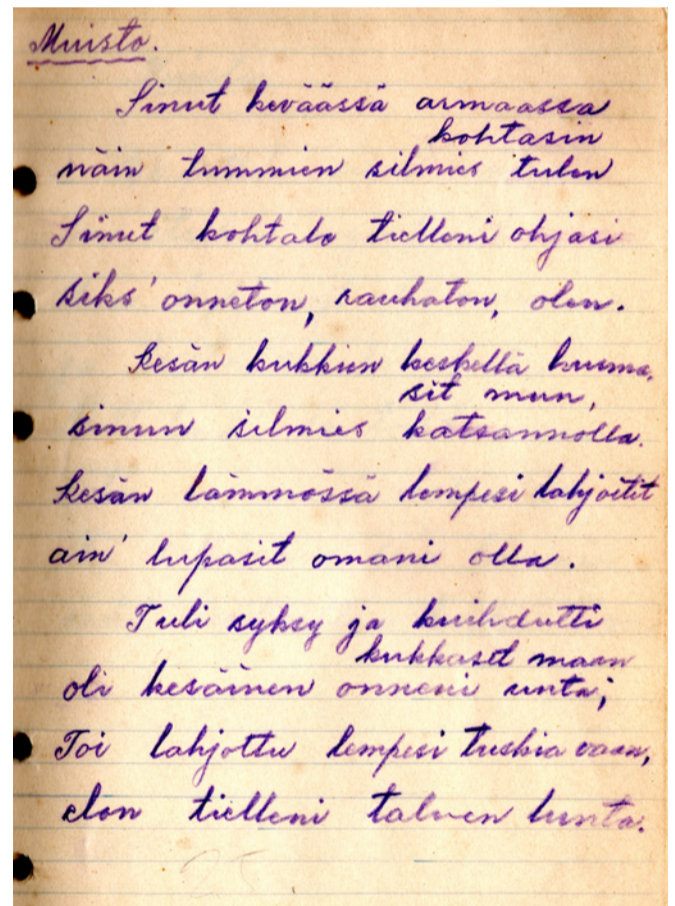 Muisto.
Sinut keväässä armaassa
kohtasin
näin tummien silmies tulen
Sinut kohtalo tielleni ohjasi
siks' onneton, rauhaton, olen.
Kesän kukkien keskellä hurma-
sit mun,
sinun silmies katsannolla.
Kesän lämmössä lempesi lahjoitit
ain' lupasit omani olla.
Tuli syksy ja kuihdutti
kukkaset maan
oli kesäinen onneni unta;
Toi lahjottu lempesi tuskia vaan,
elon tielleni talven lunta.
25